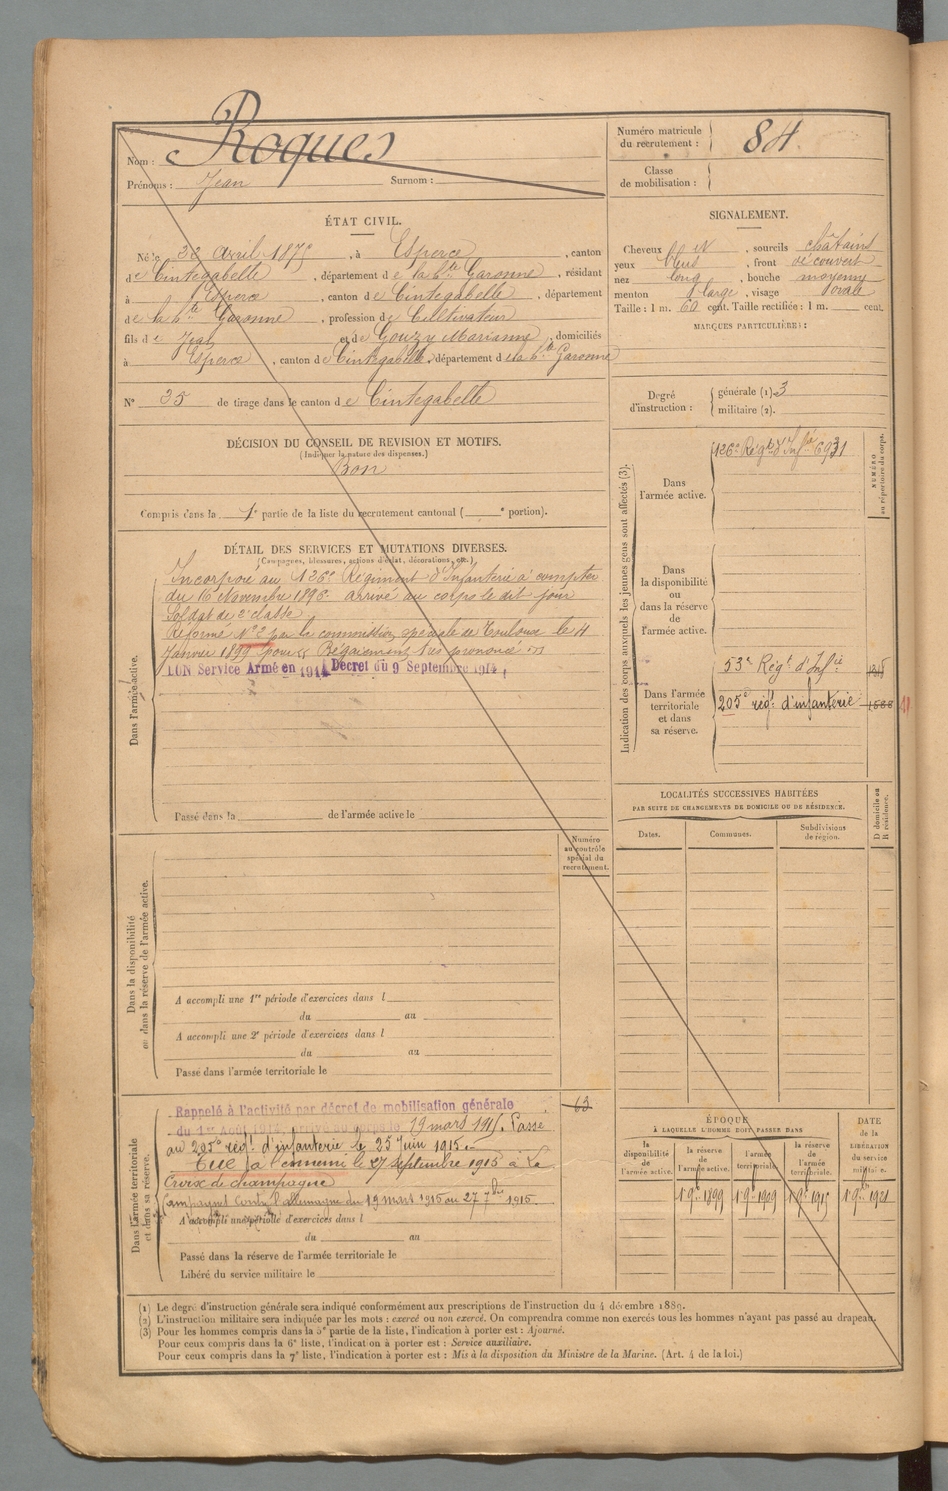 Nom : Roques
Prénoms : Jean Surnom :
Numéro matricule du recrutement : 84
Classe de mobilisation :
ÉTAT CIVIL.
Né le avril 187 , à Esperce , canton
de Cintegabelle , département de la hte Garonne , résidant
à Esperce , canton de Cintegabelle , département
de la hte Garonne , profession de Cultivateur
fils de Jean et de Gouzy Marianne , domiciliés
à Esperce , canton de Cintegabelle , département de la hte Garonne
N° 35 de tirage dans le canton de Cintegabelle
DÉCISION DU CONSEIL DE REVISION ET MOTIFS.
(Indiquer la nature des dispenses.)
Bon
Compris dans la 1e partie de la liste du recrutement cantonal ( e portion).
DÉTAIL DES SERVICES ET MUTATIONS DIVERSES.
(Campagnes, blessures, actions d'éclat, décorations, etc.)
Dans l'armée active.
Incorporé au 126e Régiment d'Infanterie à compter
du 16 Novembre 1896. arrivé au corps le dit jour
Soldat de 2e classe.
Réformé N° 2 par la commission spéciale de Toulouse le 4
Janvier 1899 pour Bégaiement très prononcé
BON Service Armé en 1914 Décret du 9 Septembre 1914
Passé dans la de l'armée active le
Numéro au contrôle spécial du recrutement.
Dans la disponibilité
ou dans la réserve de l'armée active.
A accompli une 1re période d'exercices dans l
du au
A accompli une 2e période d'exercices dans l
du au
Passé dans l'armée territoriale le
Dans l'armée territoriale
et dans sa réserve.
Rappelé à l'activité par décret de mobilisation générale 63
du 1er Août 1914, arrivé au corps le 19 mars 1915. Passé
au 205e régt d'infanterie le 25 Juin 1915.
Tué à l'ennemi le 27 septembre 1915 à La
Croix de champagne
Campagne Contre l'allemagne du 19 mars 1915 au 27 7bre 1915.
A accompli une période d'exercices dans l
du au
Passé dans la réserve de l'armée territoriale le
Libéré du service militaire le
SIGNALEMENT.
Cheveux , sourcils châtains
yeux bleus , front découvert
nez long , bouche moyenne
menton large , visage ovale
Taille : 1 m. 60 cent. Taille rectifiée : 1 m. cent.
MARQUES PARTICULIÈRES :
Degré d'instruction :
générale (1) 3
militaire (2).
Indication des corps auxquels les jeunes gens sont affectés (3).
NUMÉRO au répertoire du corps.
Dans l'armée active.
126e Régt d'Infie 6931
Dans la disponibilité ou dans la réserve de l'armée active.
Dans l'armée territoriale et dans sa réserve.
53e Régt d'Infie
205e régt d'infanterie
LOCALITÉS SUCCESSIVES HABITÉES
PAR SUITE DE CHANGEMENTS DE DOMICILE OU DE RÉSIDENCE.
Dates. Communes. Subdivisions de région. D domicile ou R résidence.
ÉPOQUE
À LAQUELLE L'HOMME DOIT PASSER DANS
la disponibilité de l'armée active.
la réserve de l'armée active.
l'armée territoriale.
la réserve de l'armée territoriale.
DATE de la LIBÉRATION du service militaire.
1 9bre 1899 1 9bre 1909 1 9bre 1915 1 9bre 1921
(1) Le degré d'instruction générale sera indiqué conformément aux prescriptions de l'instruction du 4 décembre 1889.
(2) L'instruction militaire sera indiquée par les mots : exercé ou non exercé. On comprendra comme non exercés tous les hommes n'ayant pas passé au drapeau.
(3) Pour les hommes compris dans la 5e partie de la liste, l'indication à porter est : Ajourné.
Pour ceux compris dans la 6e liste, l'indication à porter est : Service auxiliaire.
Pour ceux compris dans la 7e liste, l'indication à porter est : Mis à la disposition du Ministre de la Marine. (Art. 4 de la loi.)